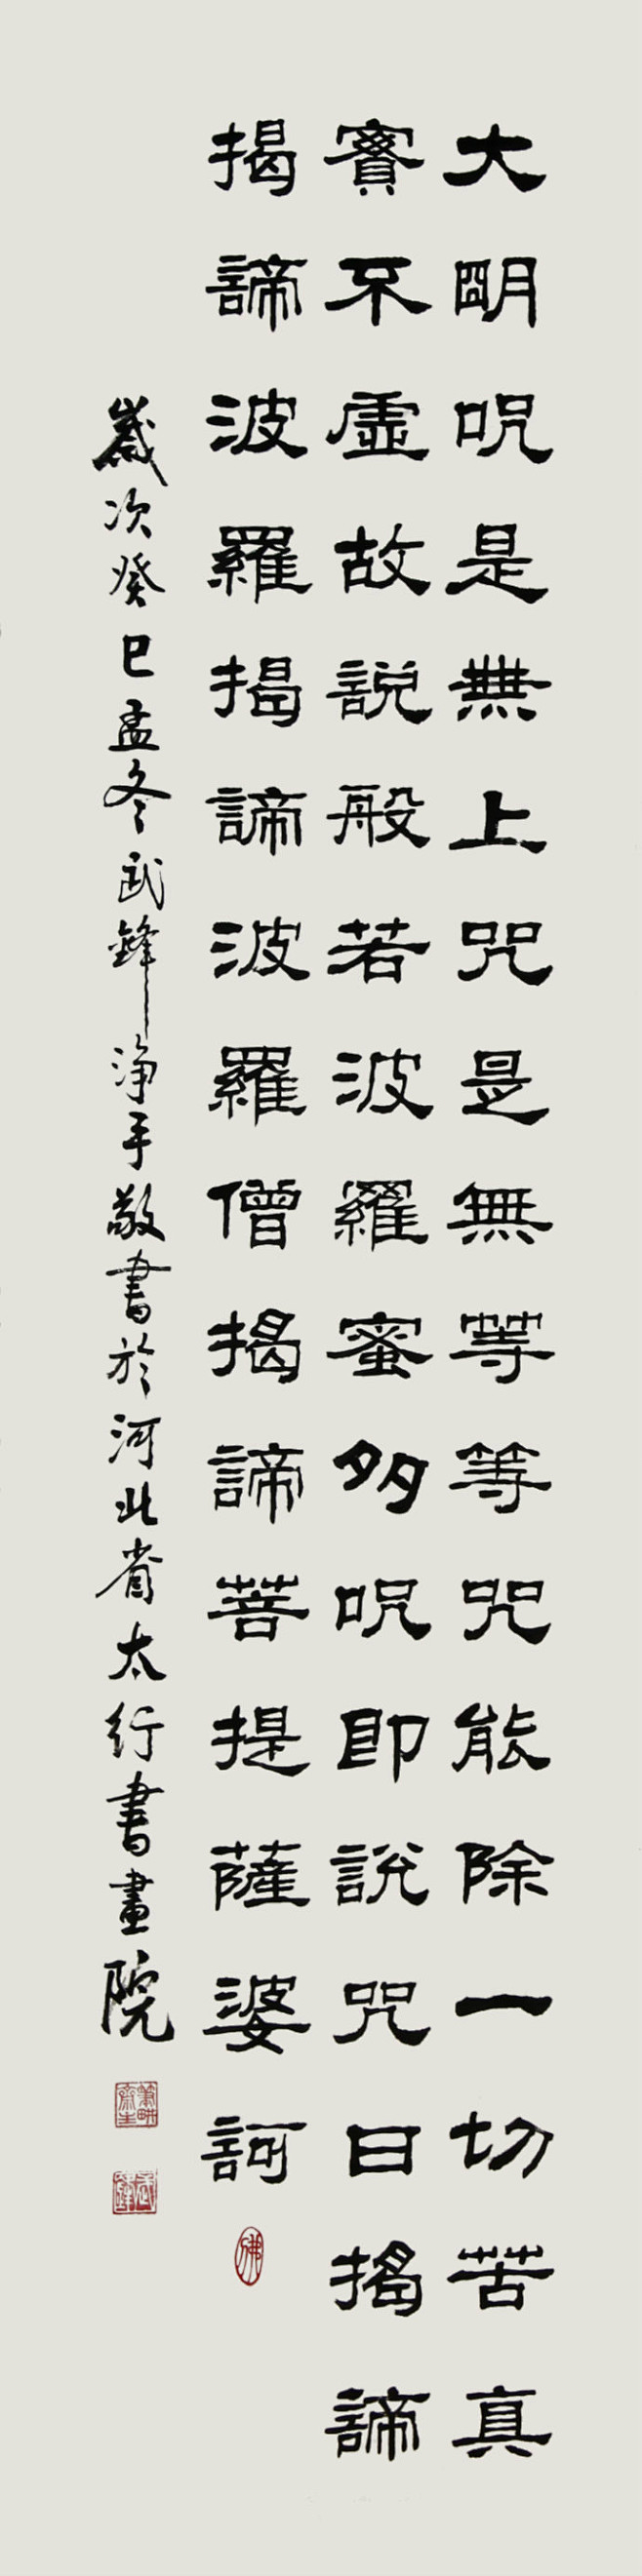 大明咒是無上咒是無等等咒能除一切苦真
實不虛故說般若波羅蜜多咒即說咒曰揭諦
揭諦波羅揭諦波羅僧揭諦菩提薩婆訶
歲次癸巳孟冬武鋒淨手敬書於河北省太行書畫院
佛